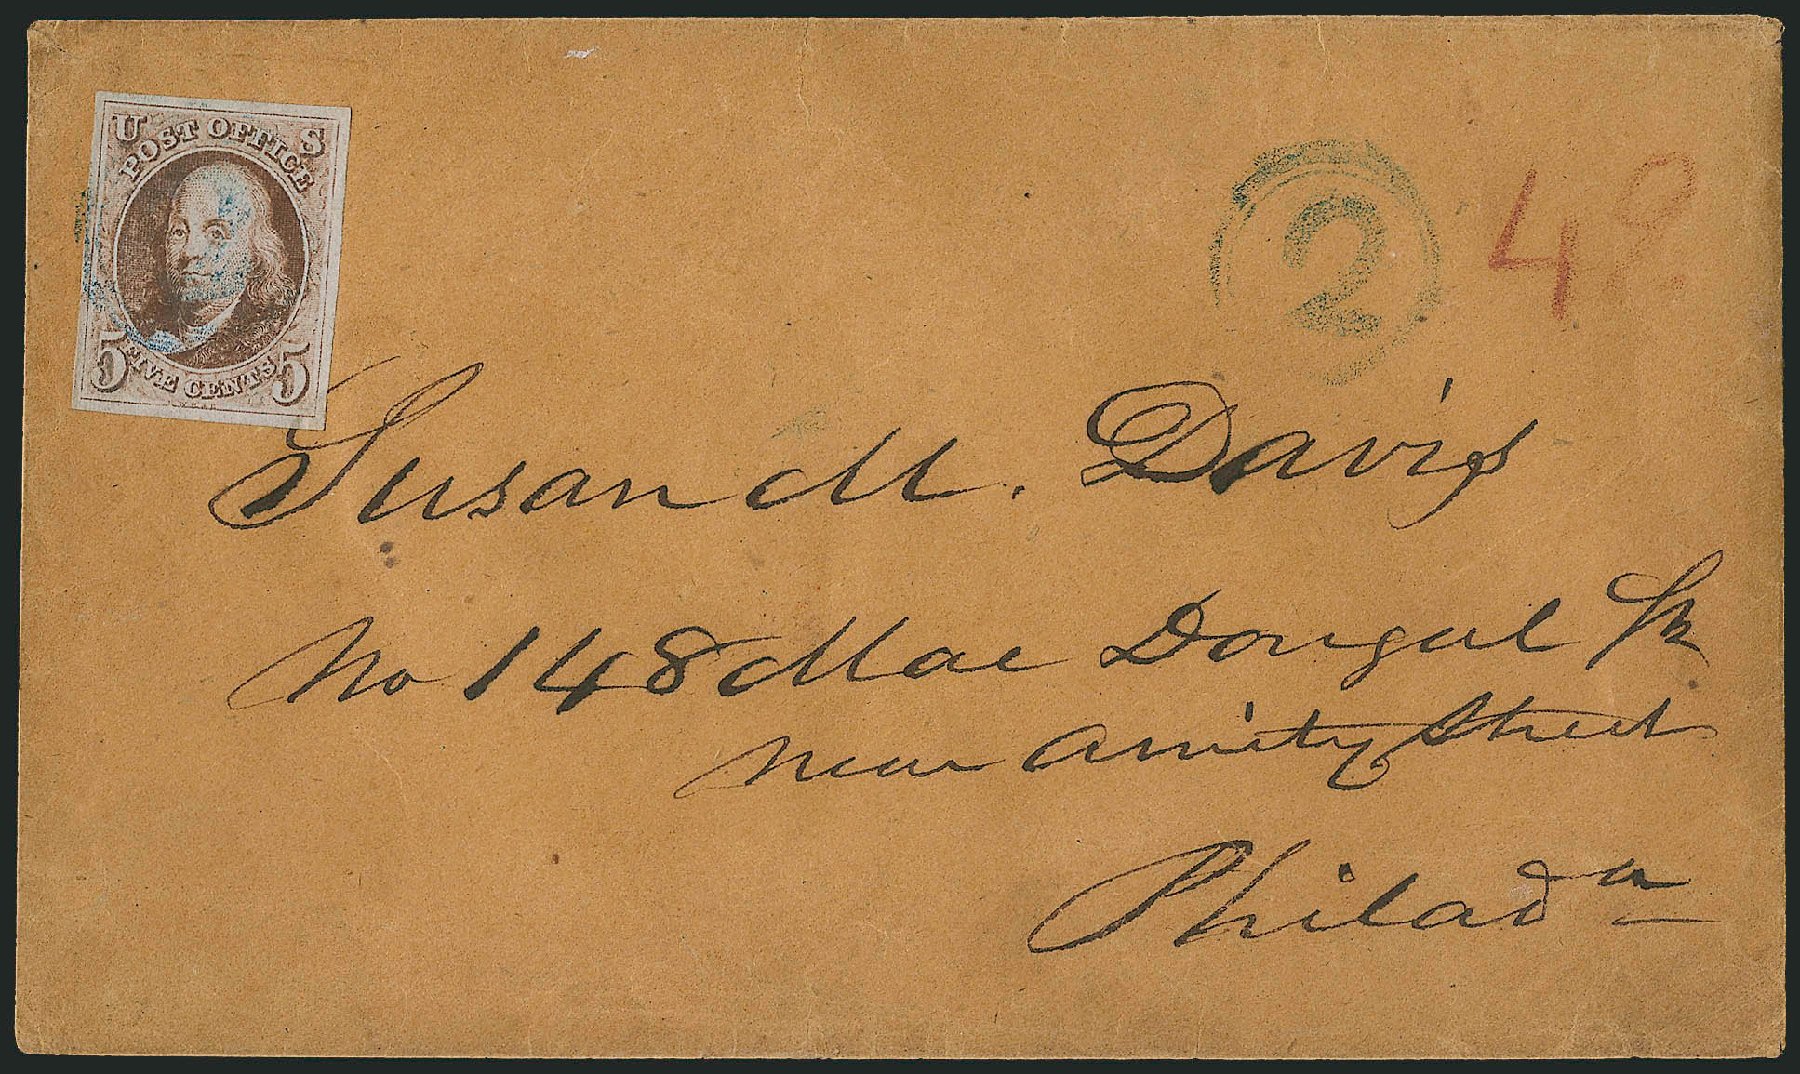 U S
POST OFFICE
5 FIVE CENTS 5
2
4
Susan M. Davis
No 148 Mac Dougal St
near Amity Street
Philad a